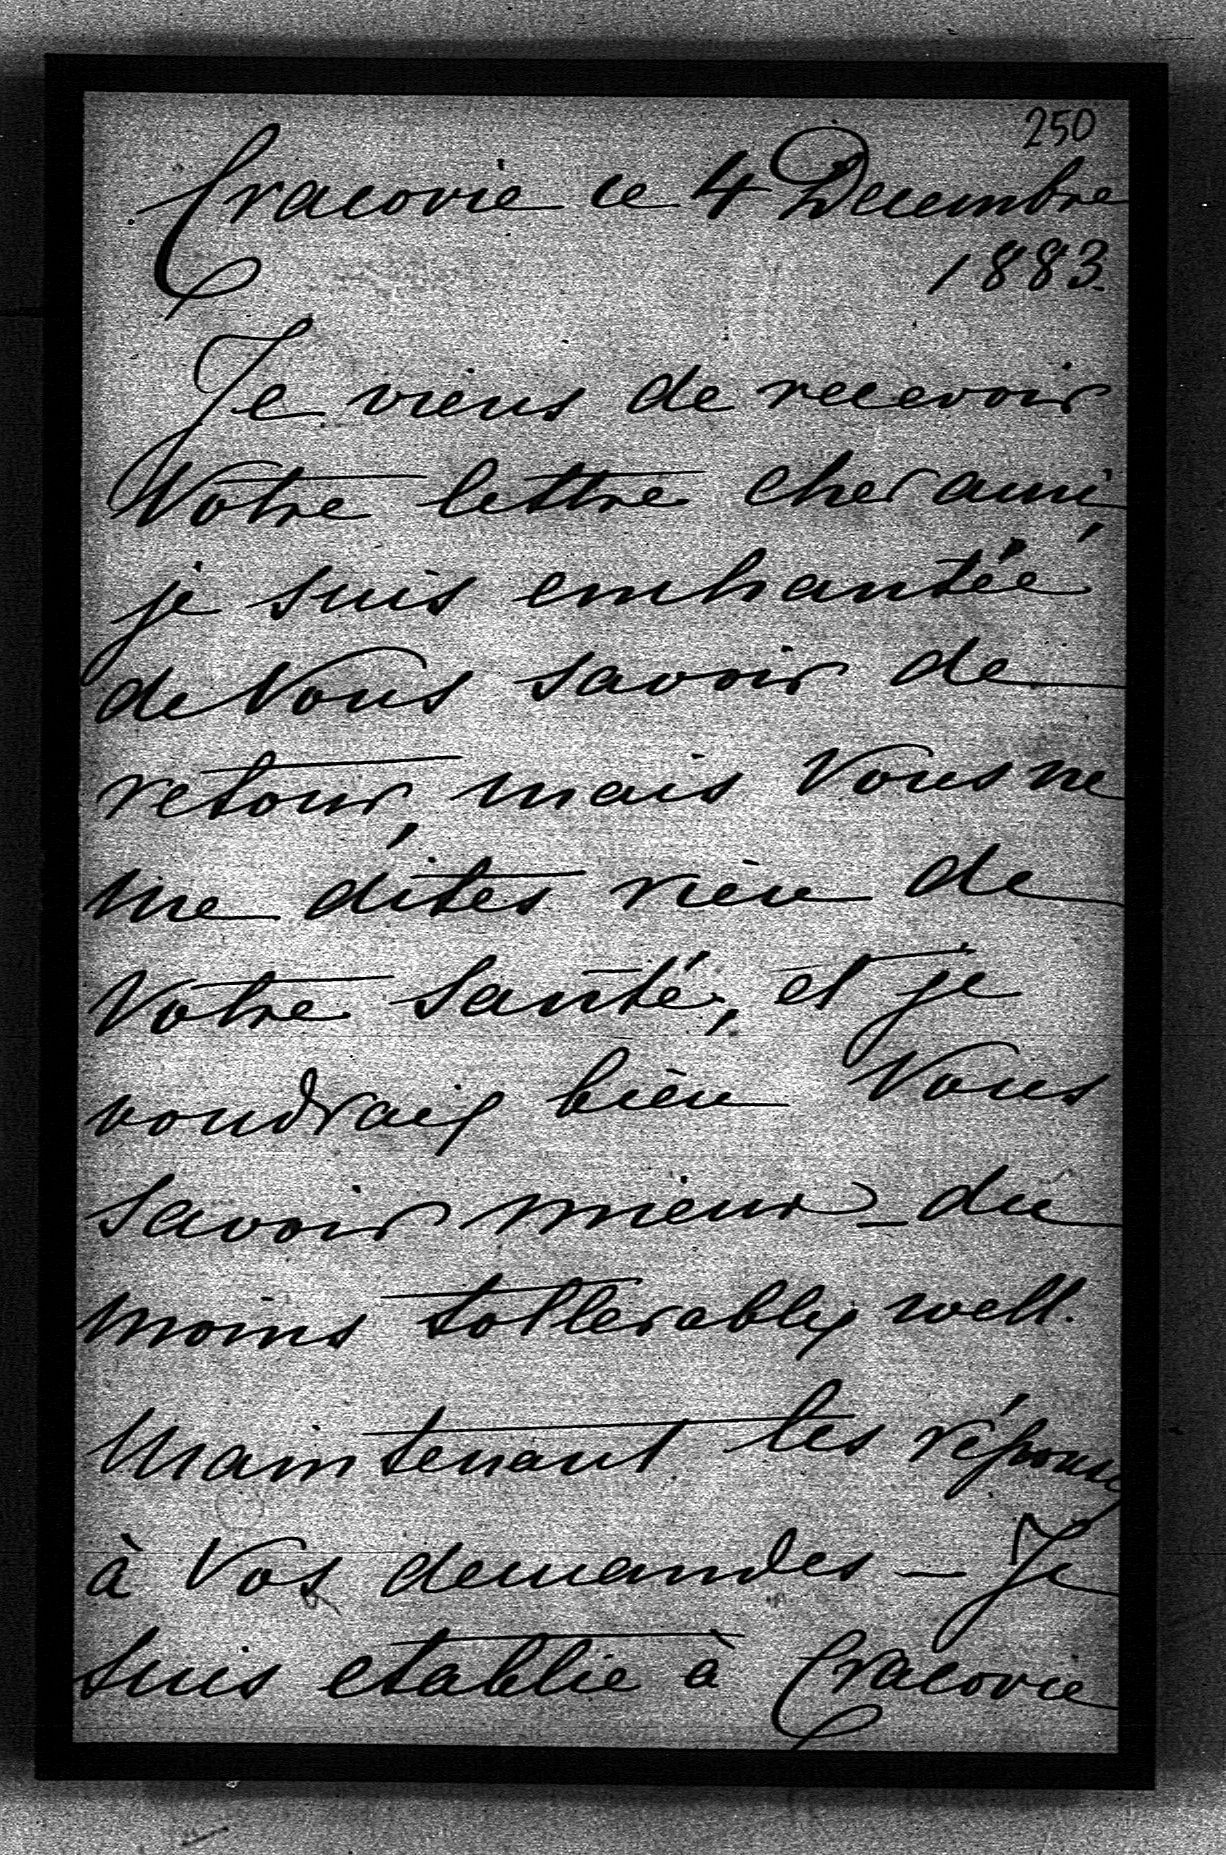 250
Cracovie ce 4 Decembre
1883.
Je viens de recevoir
Votre lettre cher ami,
je suis enchantée
de Vous savoir de
retour, mais Vous ne
me dites rien de
Votre santé, et je
voudrais bien Vous
savoir mieux – du
moins tollerably well.
Maintenant les réponses
à Vos demandes – Je
suis etablie à Cracovie